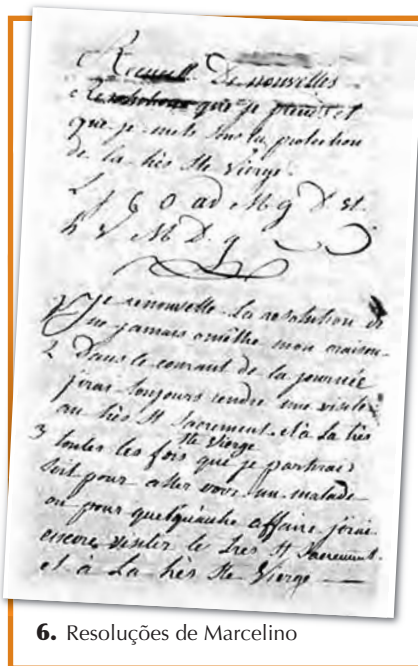 Recueil De nouvelles
Resolutions que je prend et
que je mets sous la protection
de la très Ste Vierge.
L J C O ad M. g D. st.
h V M D. g
1 Je renouvelle la resolution de
ne jamais omêttre mon oraison
2 Dans le courant de la journée
j'irai toujours rendre une visite
au très St Sacrement et à La très
Ste Vierge
3 toutes les fois que je partirai
soit pour aller voir un malade
ou pour quelqu'autre affaire j'irai
encore visiter le très St Sacrement
et à La très Ste Vierge
6. Resoluções de Marcelino